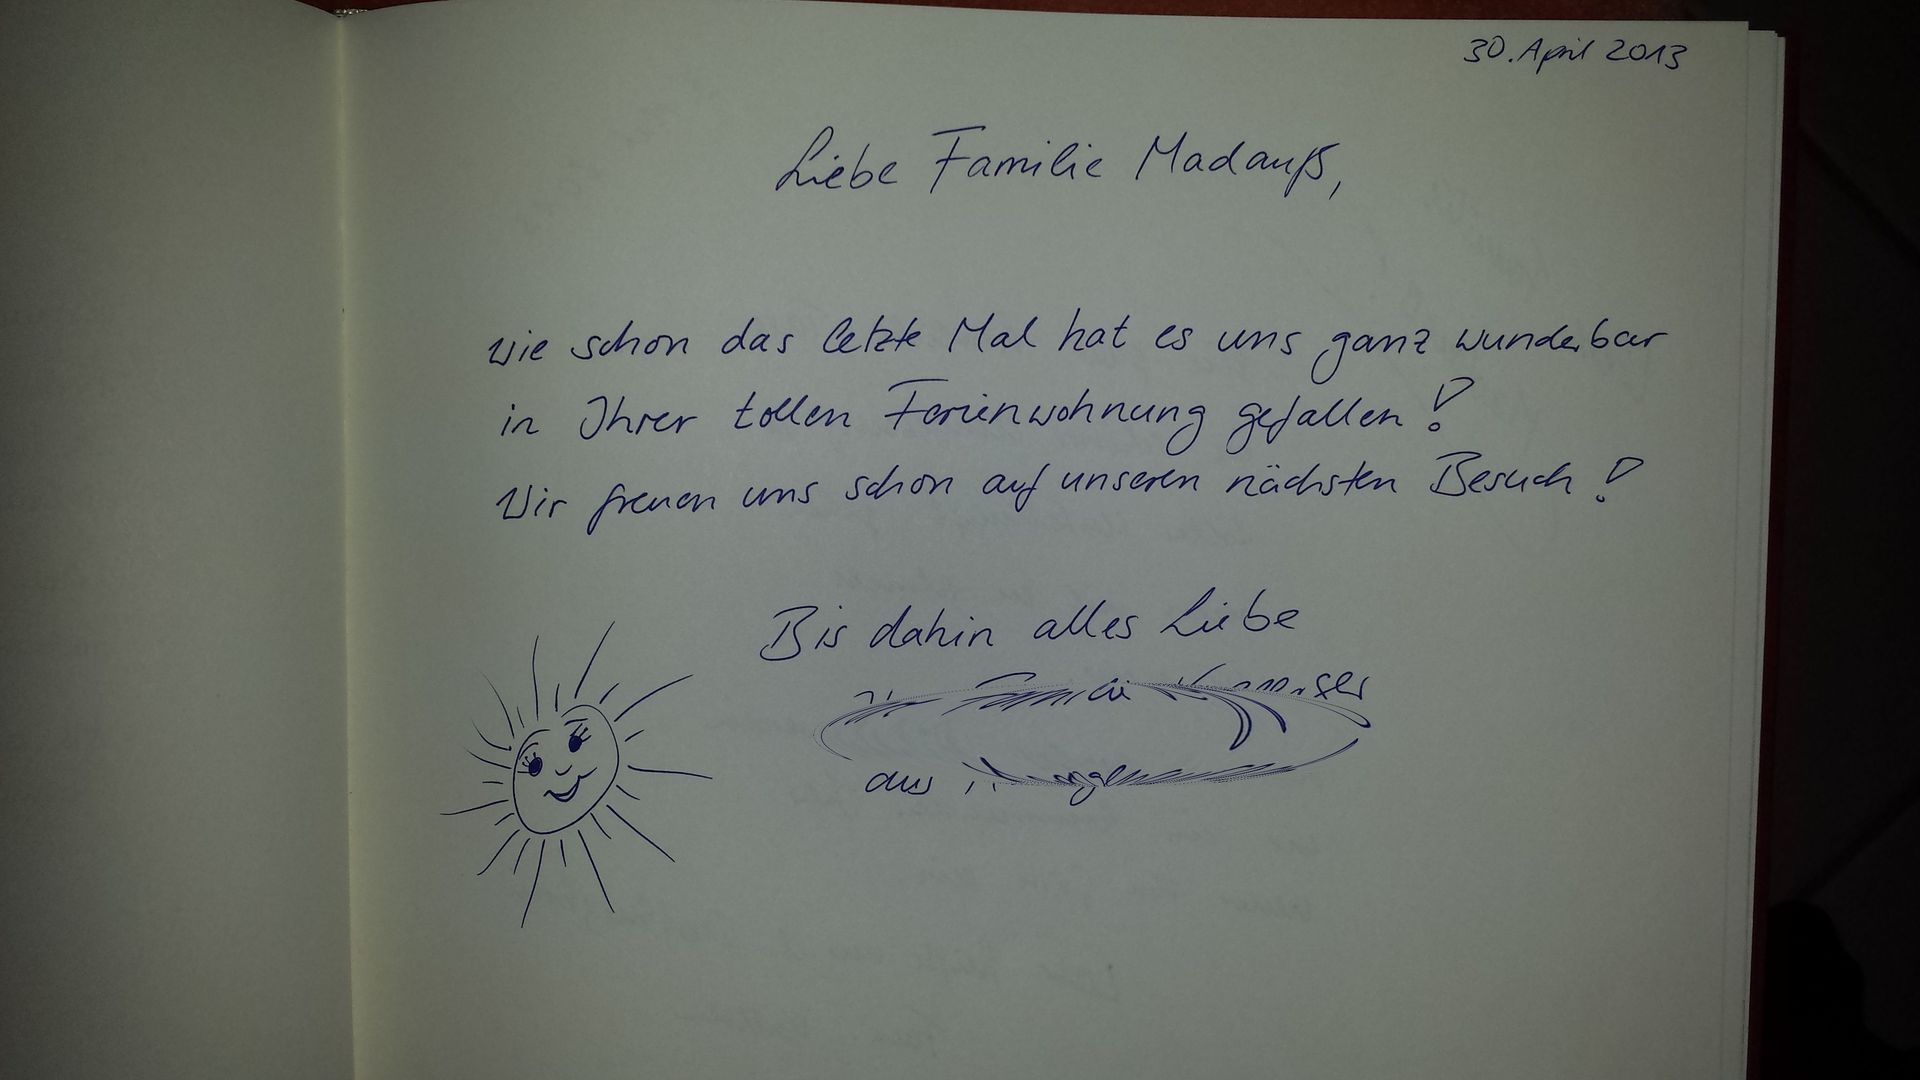 30. April 2013
Liebe Familie Madauß,
wie schon das letzte Mal hat es uns ganz wunderbar
in Ihrer tollen Ferienwohnung gefallen!
Wir freuen uns schon auf unseren nächsten Besuch!
Bis dahin alles Liebe
aus